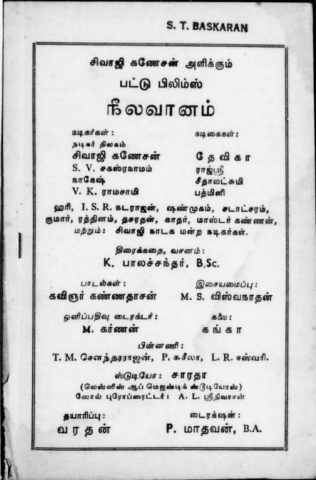 S. T. BASKARAN
சிவாஜி கணேசன் அளிக்கும்
பட்டு பிலிம்ஸ்
நீலவானம்
நடிகர்கள் : நடிகைகள் :
நடிகர் திலகம்
சிவாஜி கணேசன் தேவிகா
S. V. சகஸ்ரநாமம் ராஜஸ்ரீ
நாகேஷ் சீதாலட்சுமி
V. K. ராமசாமி பத்மினி
ஹரி, I. S. R. நடராஜன், ஷண்முகம், சடாட்சரம்,
குமார், ரத்தினம், தசரதன், காதர், மாஸ்டர் கண்ணன்,
மற்றும் : சிவாஜி நாடக மன்ற நடிகர்கள்.
திரைக்கதை, வசனம் :
K. பாலச்சந்தர், B,Sc.
பாடல்கள் : இசையமைப்பு :
கவிஞர் கண்ணதாசன் M. S. விஸ்வநாதன்
ஒளிப்பதிவு டைரக்டர் : கலை :
M. கர்ணன் கங்கா
பின்னணி :
T. M. சௌந்தரராஜன், P. சுசீலா, L. R. ஈஸ்வரி.
ஸ்டுடியோ : சாரதா
(லெஸ்ஸீஸ் ஆப் மெஜஸ்டிக் ஸ்டூடியோஸ்)
ஸோல் புரோப்ரைட்டர் : A. L. ஸ்ரீநிவாசன்
தயாரிப்பு : டைரக்ஷன் :
வரதன் P. மாதவன், B.A.